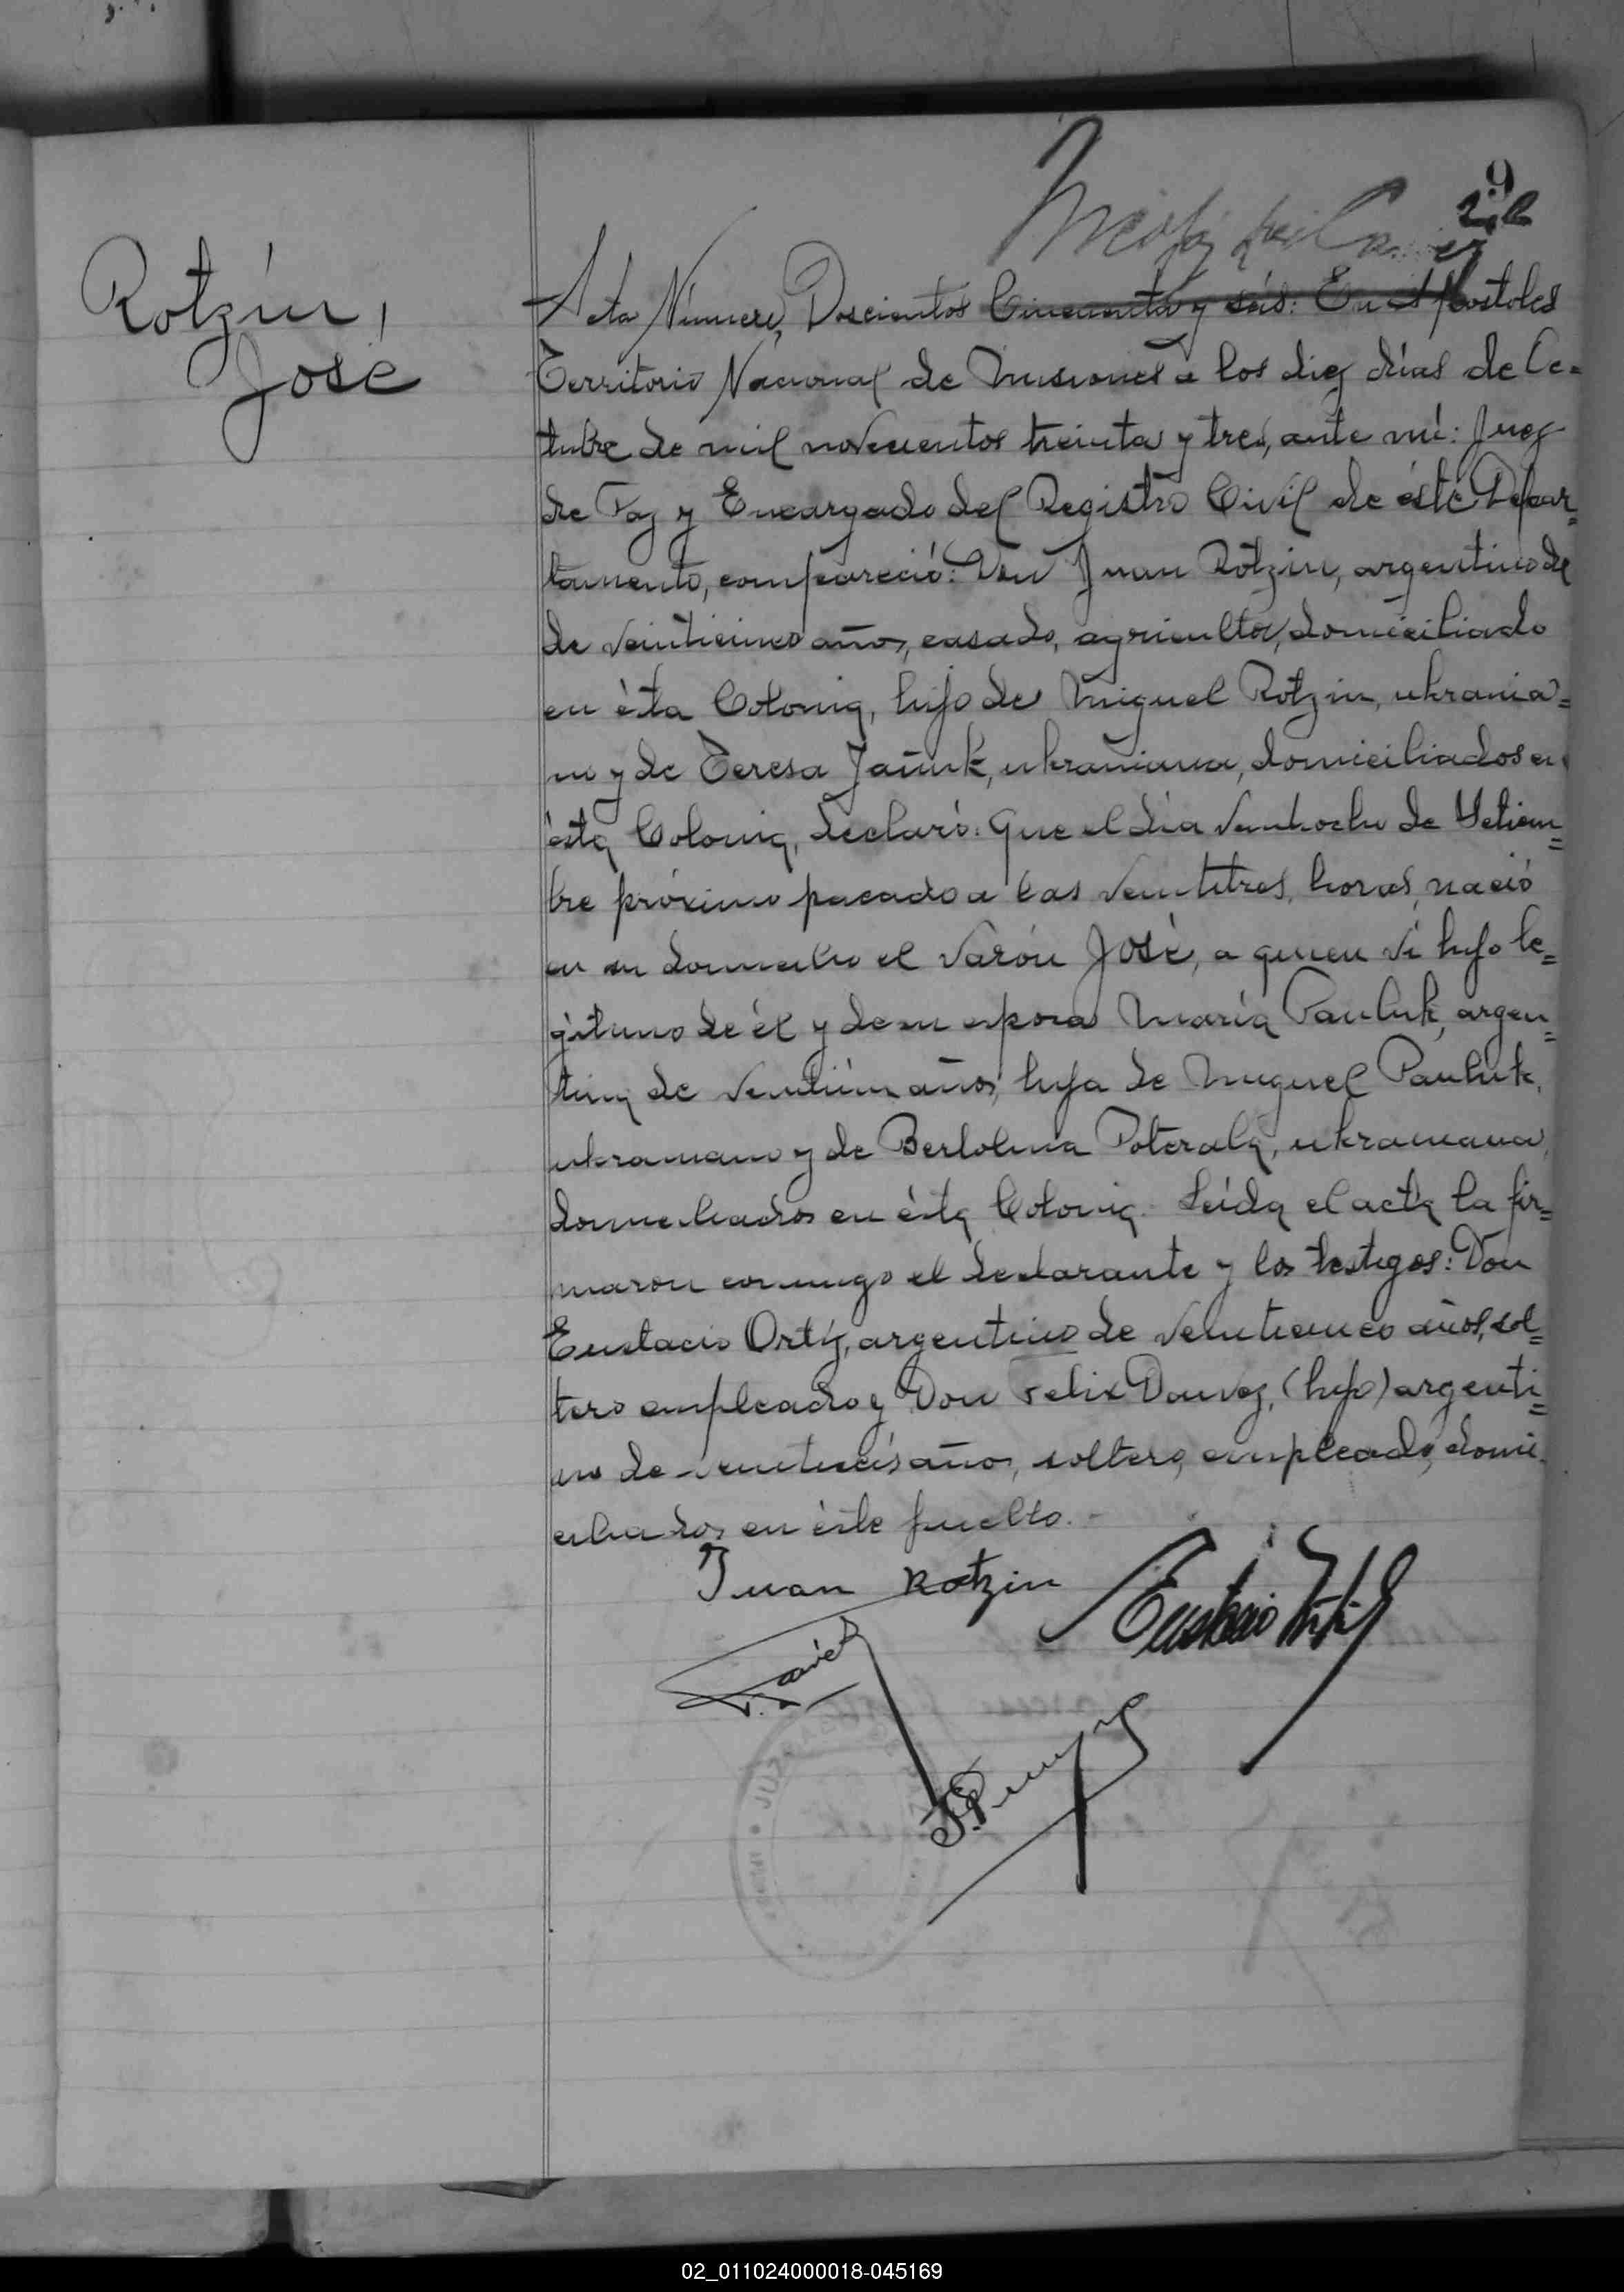 9
Rotzin,
José
Acta Número, Doscientos Cincuenta y seis: En Apostoles
Territorio Nacional de Misiones a los diez días de Oc-
tubre de mil novecientos treinta y tres, ante mí: Juez
de Paz y Encargado del Registro Civil de éste Depar=
tamento, compareció: Don Juan Rotzin, argentino de
de veinticinco años, casado, agricultor, domiciliado
en ésta Colonia, hijo de Miguel Rotzin, ukrania=
no y de Teresa Jañuk, ukraniana, domiciliados en
ésta Colonia, declaró: Que el día veintiocho de Setiem=
bre próximo pasado a las veintitres, horas, nació
en su domicilio el varón José, a quien vi hijo le=
gítimo de él y de su esposa María Pauluk, argen=
tina de veintiún años, hija de Miguel Pauluk,
ukraniano y de Bertolina Poterala, ukraniana,
domiciliados en ésta Colonia. Leída el acta la fir=
maron conmigo el declarante y los testigos: Don
Eustacio Ortiz, argentino de veinticinco años, sol=
tero empleado y Don Felix Dauvez, (hijo) argenti=
no de veintiseis años, soltero, empleado, domi-
ciliados en éste pueblo.-
Juan Rotzin
Eustacio Ortiz
02_011024000018-045169